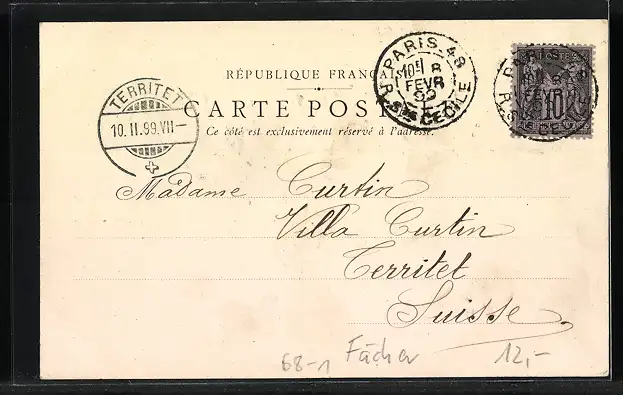 RÉPUBLIQUE FRANÇAISE
CARTE POSTALE
Ce côté est exclusivement réservé à l'adresse.
TERRITET
10. II. 99. VII—
PARIS. 48
10E 8
FEVR
99
R. STE CECILE
PARIS
FEVR
R. STE CECILE
10
Madame Curtin
Villa Curtin
Territet
Suisse.
68-1 Fächer 12,-